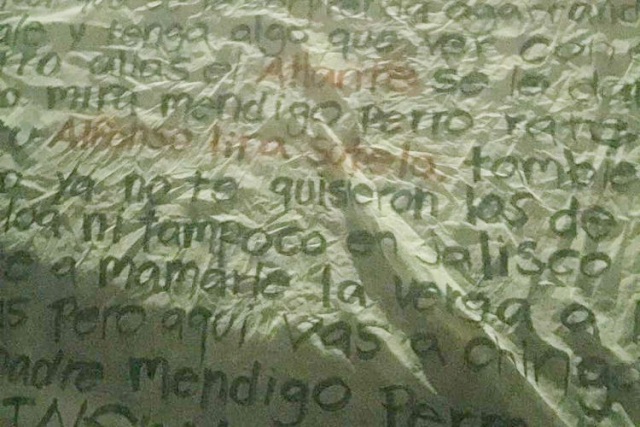 ale y tenga algo que ver con
alias el Atlante se la da
mira mendigo perro rate
Alfonso lira Sotelo tambie
ya no te quisieron los de
loa ni tampoco en Jalisco
e a mamarle la verga a
s pero aqui vas a chinga
padre mendigo Perro